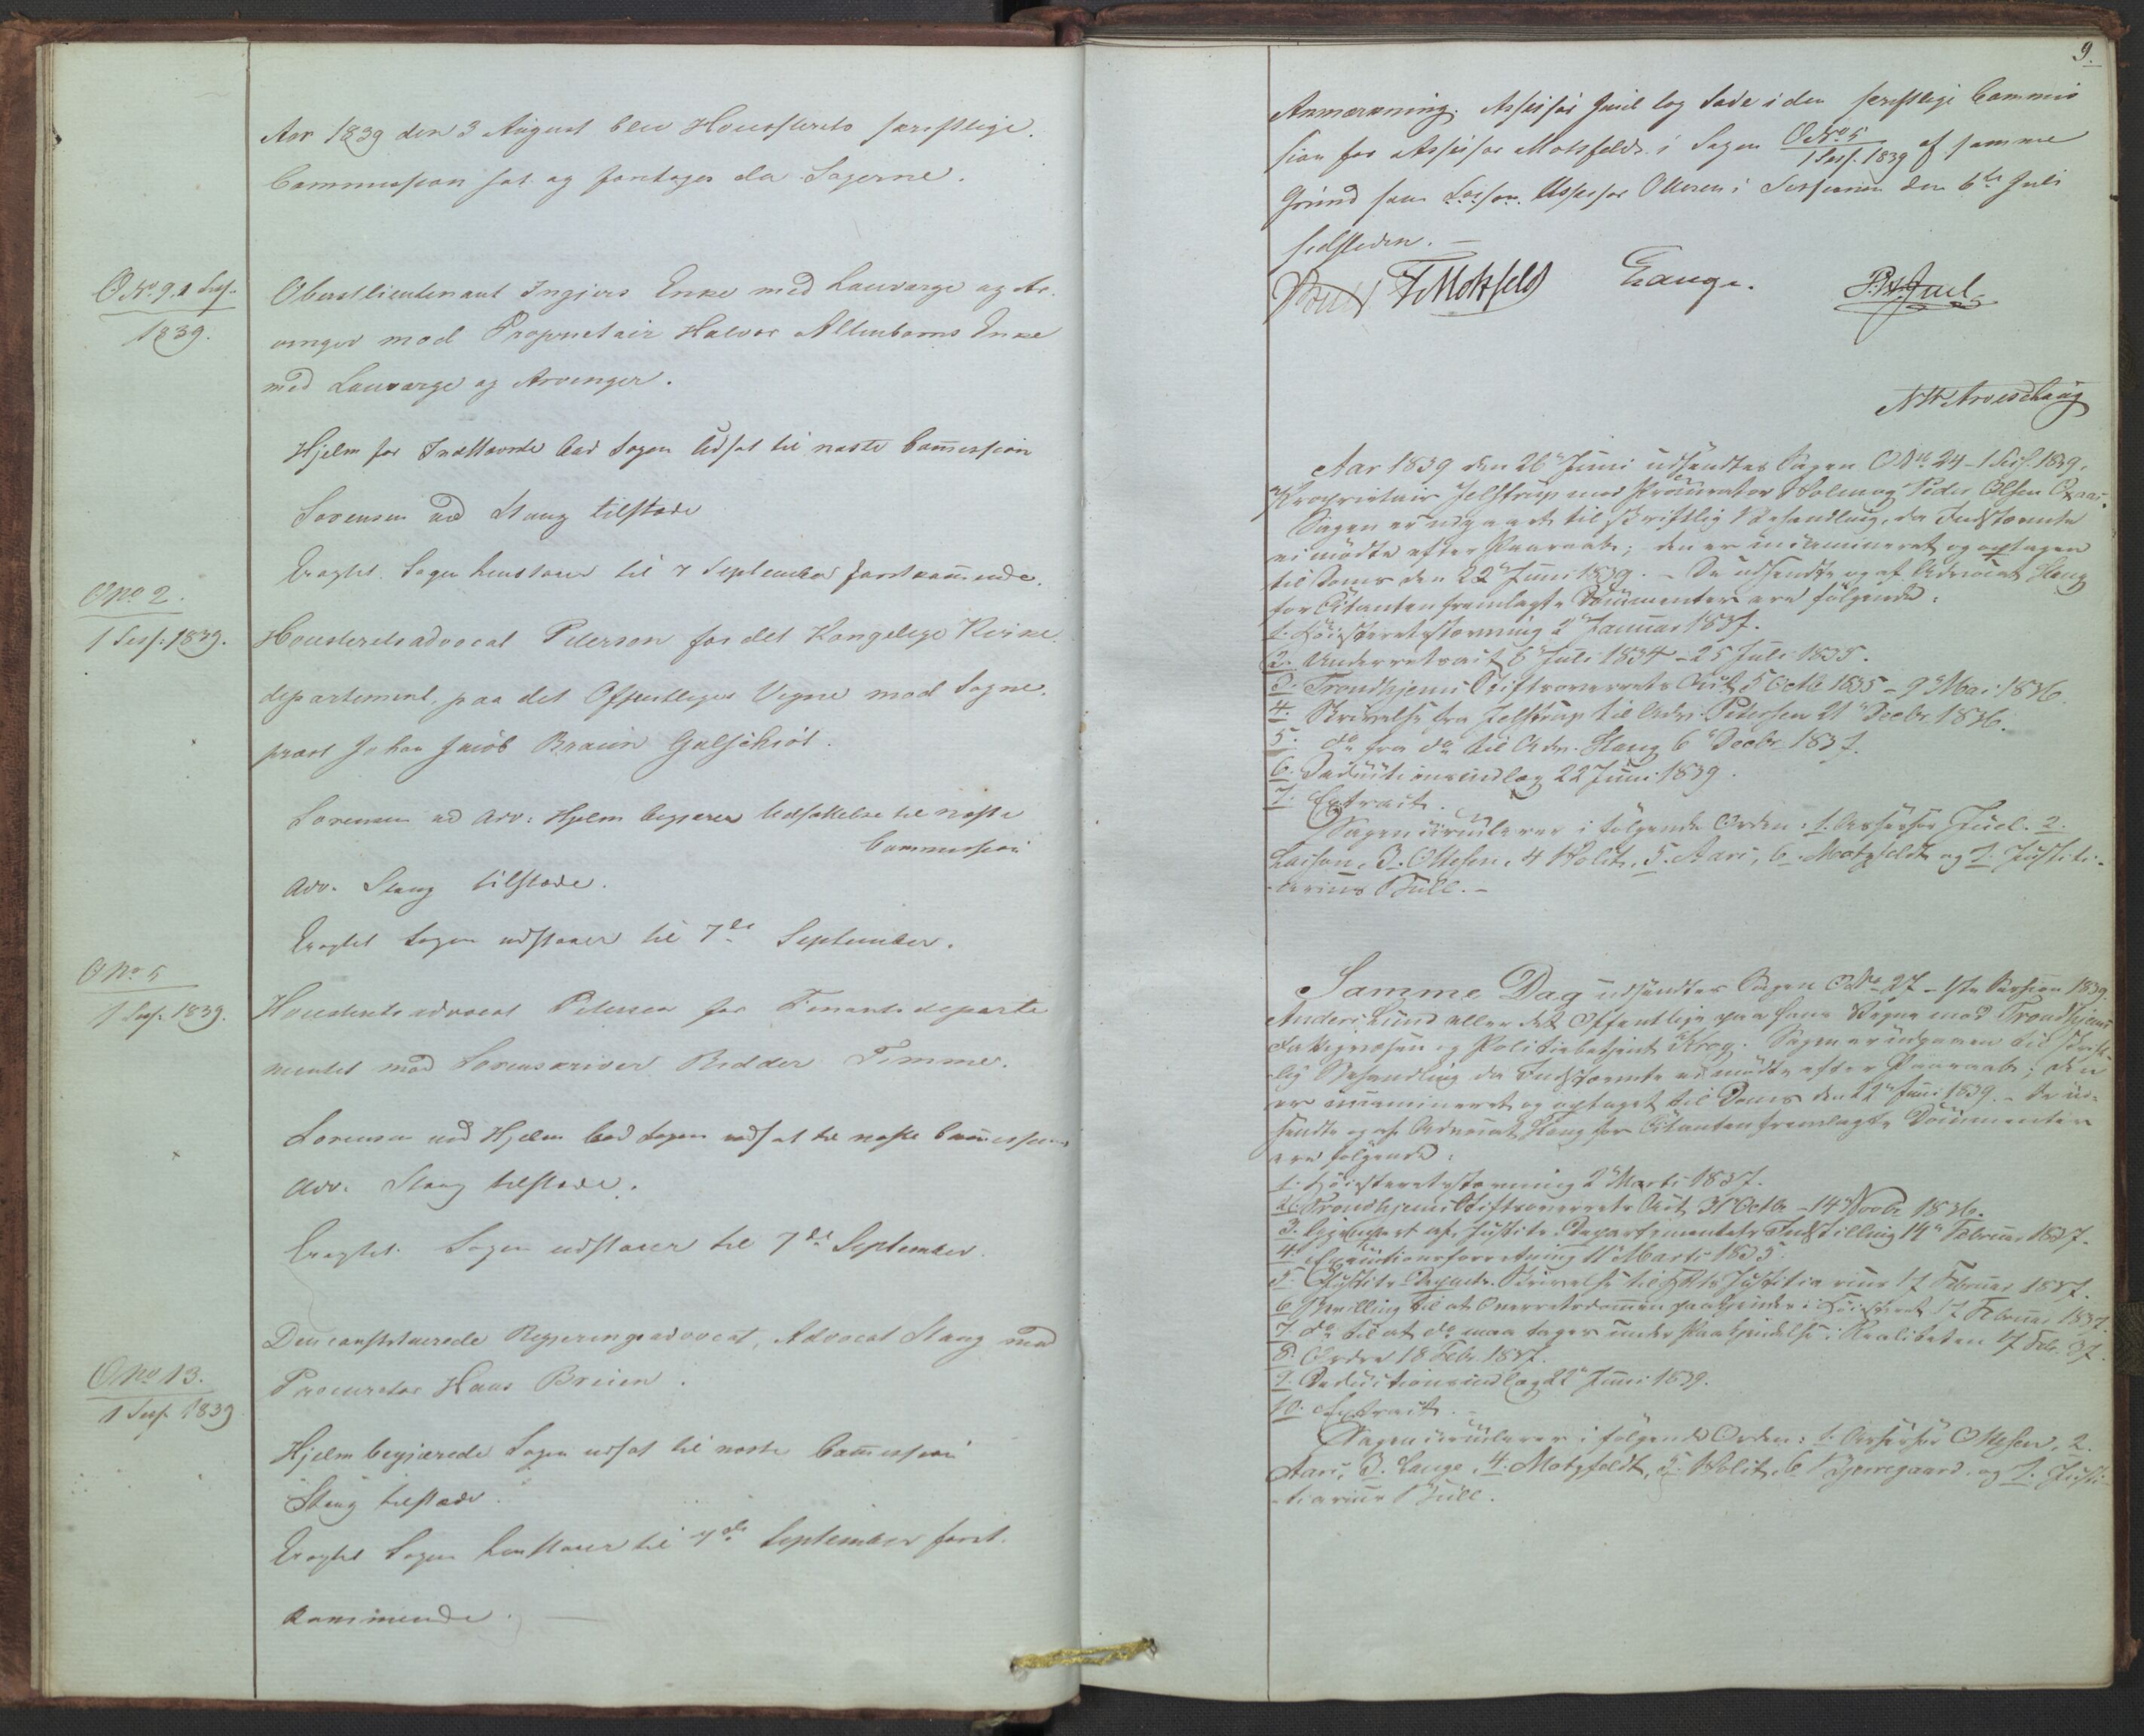 Aar 1839 den 3 August blev Høiesterets skriftlige
Commission sat og foretoges da Sagerne.
O No 9, 1 Sess.
1839.
Oberstlieutenant Ingiers Enke med Lauværge og Ar-
vinger mod Proprietair Halvor Enke
med Laugværge og Arvinger.
Hjelm for Indstævnte bad Sagen Udsat til næste Commission
Sørensen ved Stang tilstede
Eragtet. Sagen henstaaer til 7 September førstkommende.
O No 2.
1 Sess: 1839.
Høiesteretsadvocat Petersen for det Kongelige Kirke-
departement, paa det Offentliges Vegne mod Sogne-
præst Johan Jacob Braun Galschiøt.
Sørensen ved Adv: Hjelm begjærer Udsættelse til næste
Commission
Adv. Stang tilstede.
Eragtet Sagen udstaaer til 7de September.
O No 5
1 Sess. 1839.
Høiesteretsadvocat Petersen for Finantsdeparte
mentet mod Sorenskriver Ridder Timme.
Sørensen ved Hjelm bad Sagen udsat til næste Commission
Adv. Stang tilstede.
Eragtet. Sagen udstaaer til 7de September.
O No 13.
1 Sess. 1839
Den constituerede Regjeringsadvocat, Advocat Stang mod
Procurator Hans Breien.
Hjelm begjærede Sagen udsat til næste Commission
Stang tilstede.
Eragtet Sagen henstaaer til 7de September først-
kommende.
9.
Anmærkning. Assessor Juel tog Sæde i den skriftlige Commis
sion for Assessor Motzfeldt i Sagen O No 5 / 1 Sess. 1839 af samme
Grund som Assessor Ottesen i Sessionen den 6te Juli
sidstleden.
Bull F Motzfeldt Lange. Juel
Aar 1839 den 26de Juni udsendtes Sagen O No 24 - 1 Sess. 1839.
Proprietair Jelstrup mod Procurator Holm og Peder Olsen
Sagen er udgaaet til skriftlig Behandling, da Indstævnte
ei mødte efter Paaraab; den er incamineret og optagen
til Doms den 22de Juni 1839. - De udsendte og af Advocat Stang
for Citanten fremlagte Documenter ere følgende:
1. Høiesteretsstævning 2 Januar 1837.
2. Underretsact 6 Juli 1834 - 25 Juli 1835.
3. Trondhjems Stiftsoverrets Act 5 Octb 1835 - 9 Mai 1836.
4. Skrivelse fra Jelstrup til Adv. Petersen 21 Decbr. 1836.
5. do fra do til Adv. Stang 6 Decbr 1837.
6. Deductionsindlæg 22 Juni 1839.
7. Extract.
Sagen circulerer i følgende Orden: 1. Assessor Juel. 2.
Lasson, 3. Ottesen, 4 Holst, 5. Aars, 6. Motzfeldt og 7. Justiti-
arius Bull. -
Samme Dag udsendtes Sagen O No 27 - 1ste Session 1839.
Anders Lund eller det Offentlige paa hans Vegne mod Trondhjems
Fattigvæsen og Politiebetjent Krog. Sagen er udgaaen til skrift-
lig Behandling da Indstævnte ei mødte efter Paaraab; den
er incamineret og optaget til Doms den 22de Juni 1839. - De ud-
sendte og af Advocat Stang for Citanten fremlagte Documenter
ere følgende:
1. Høiesteretsstævning 2 Marts 1837.
2. Trondhjems Stiftsoverrets Act 31 Octbr - 14 Novbr 1836.
3. Gjenpart af Justits-Departementets Indstilling 14 Februar 1837.
4. Executionsforretning 11 Marts 1835.
5. Justits-Departs. Skrivelse til Justitiarius 17 Februar 1837.
6. Bevilling til at Overretsdommen paakjendes i Høiesteret 17 Februar 1837.
7. do til at do maa tages under Paakjendelse i Realiteten 17 Feb. 37.
8. Ordre 18 Febr. 1837.
9. Deductionsindlæg 22 Juni 1839.
10. Extract.
Sagen circulerer i følgende Orden: 1. Assessor Ottesen, 2.
Aars, 3. Lange, 4. Motzfeldt, 5. Holst, 6 Bjerregaard, og 7. Justi-
tiarius Bull.